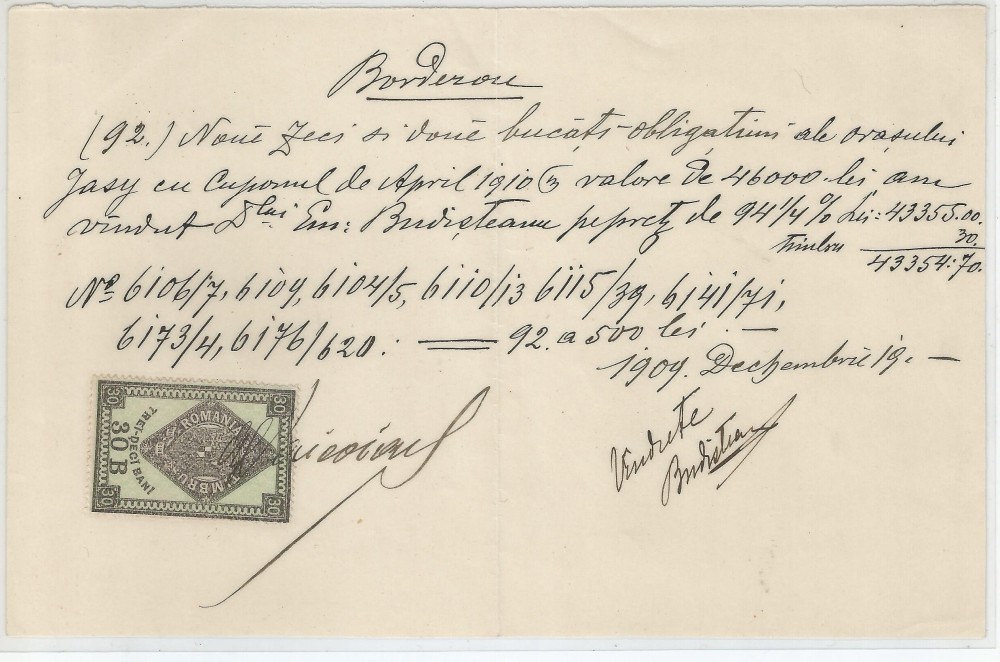 Borderou
(92.) Nouĕ Zeci si douĕ bucăți obligațiuni ale orașului
Jasy cu Cuponul de April 1910 (în valore de 46000 lei am
vîndut Dlui Em: Budișteanu pe preț de 94 1/4 % Lei: 43355.00.
timbru 30.
43354.70.
No 6106/7, 6109, 6104/5, 6110/13 6115/39, 6141/71,
6173/4, 6176/620. 92 a 500 lei. —
1909. Dechembrie 19. —
Vîndute
Budișteanu
30 30 30 30
ROMANIA
TIMBRU
TREI-DECI BANI
30 B